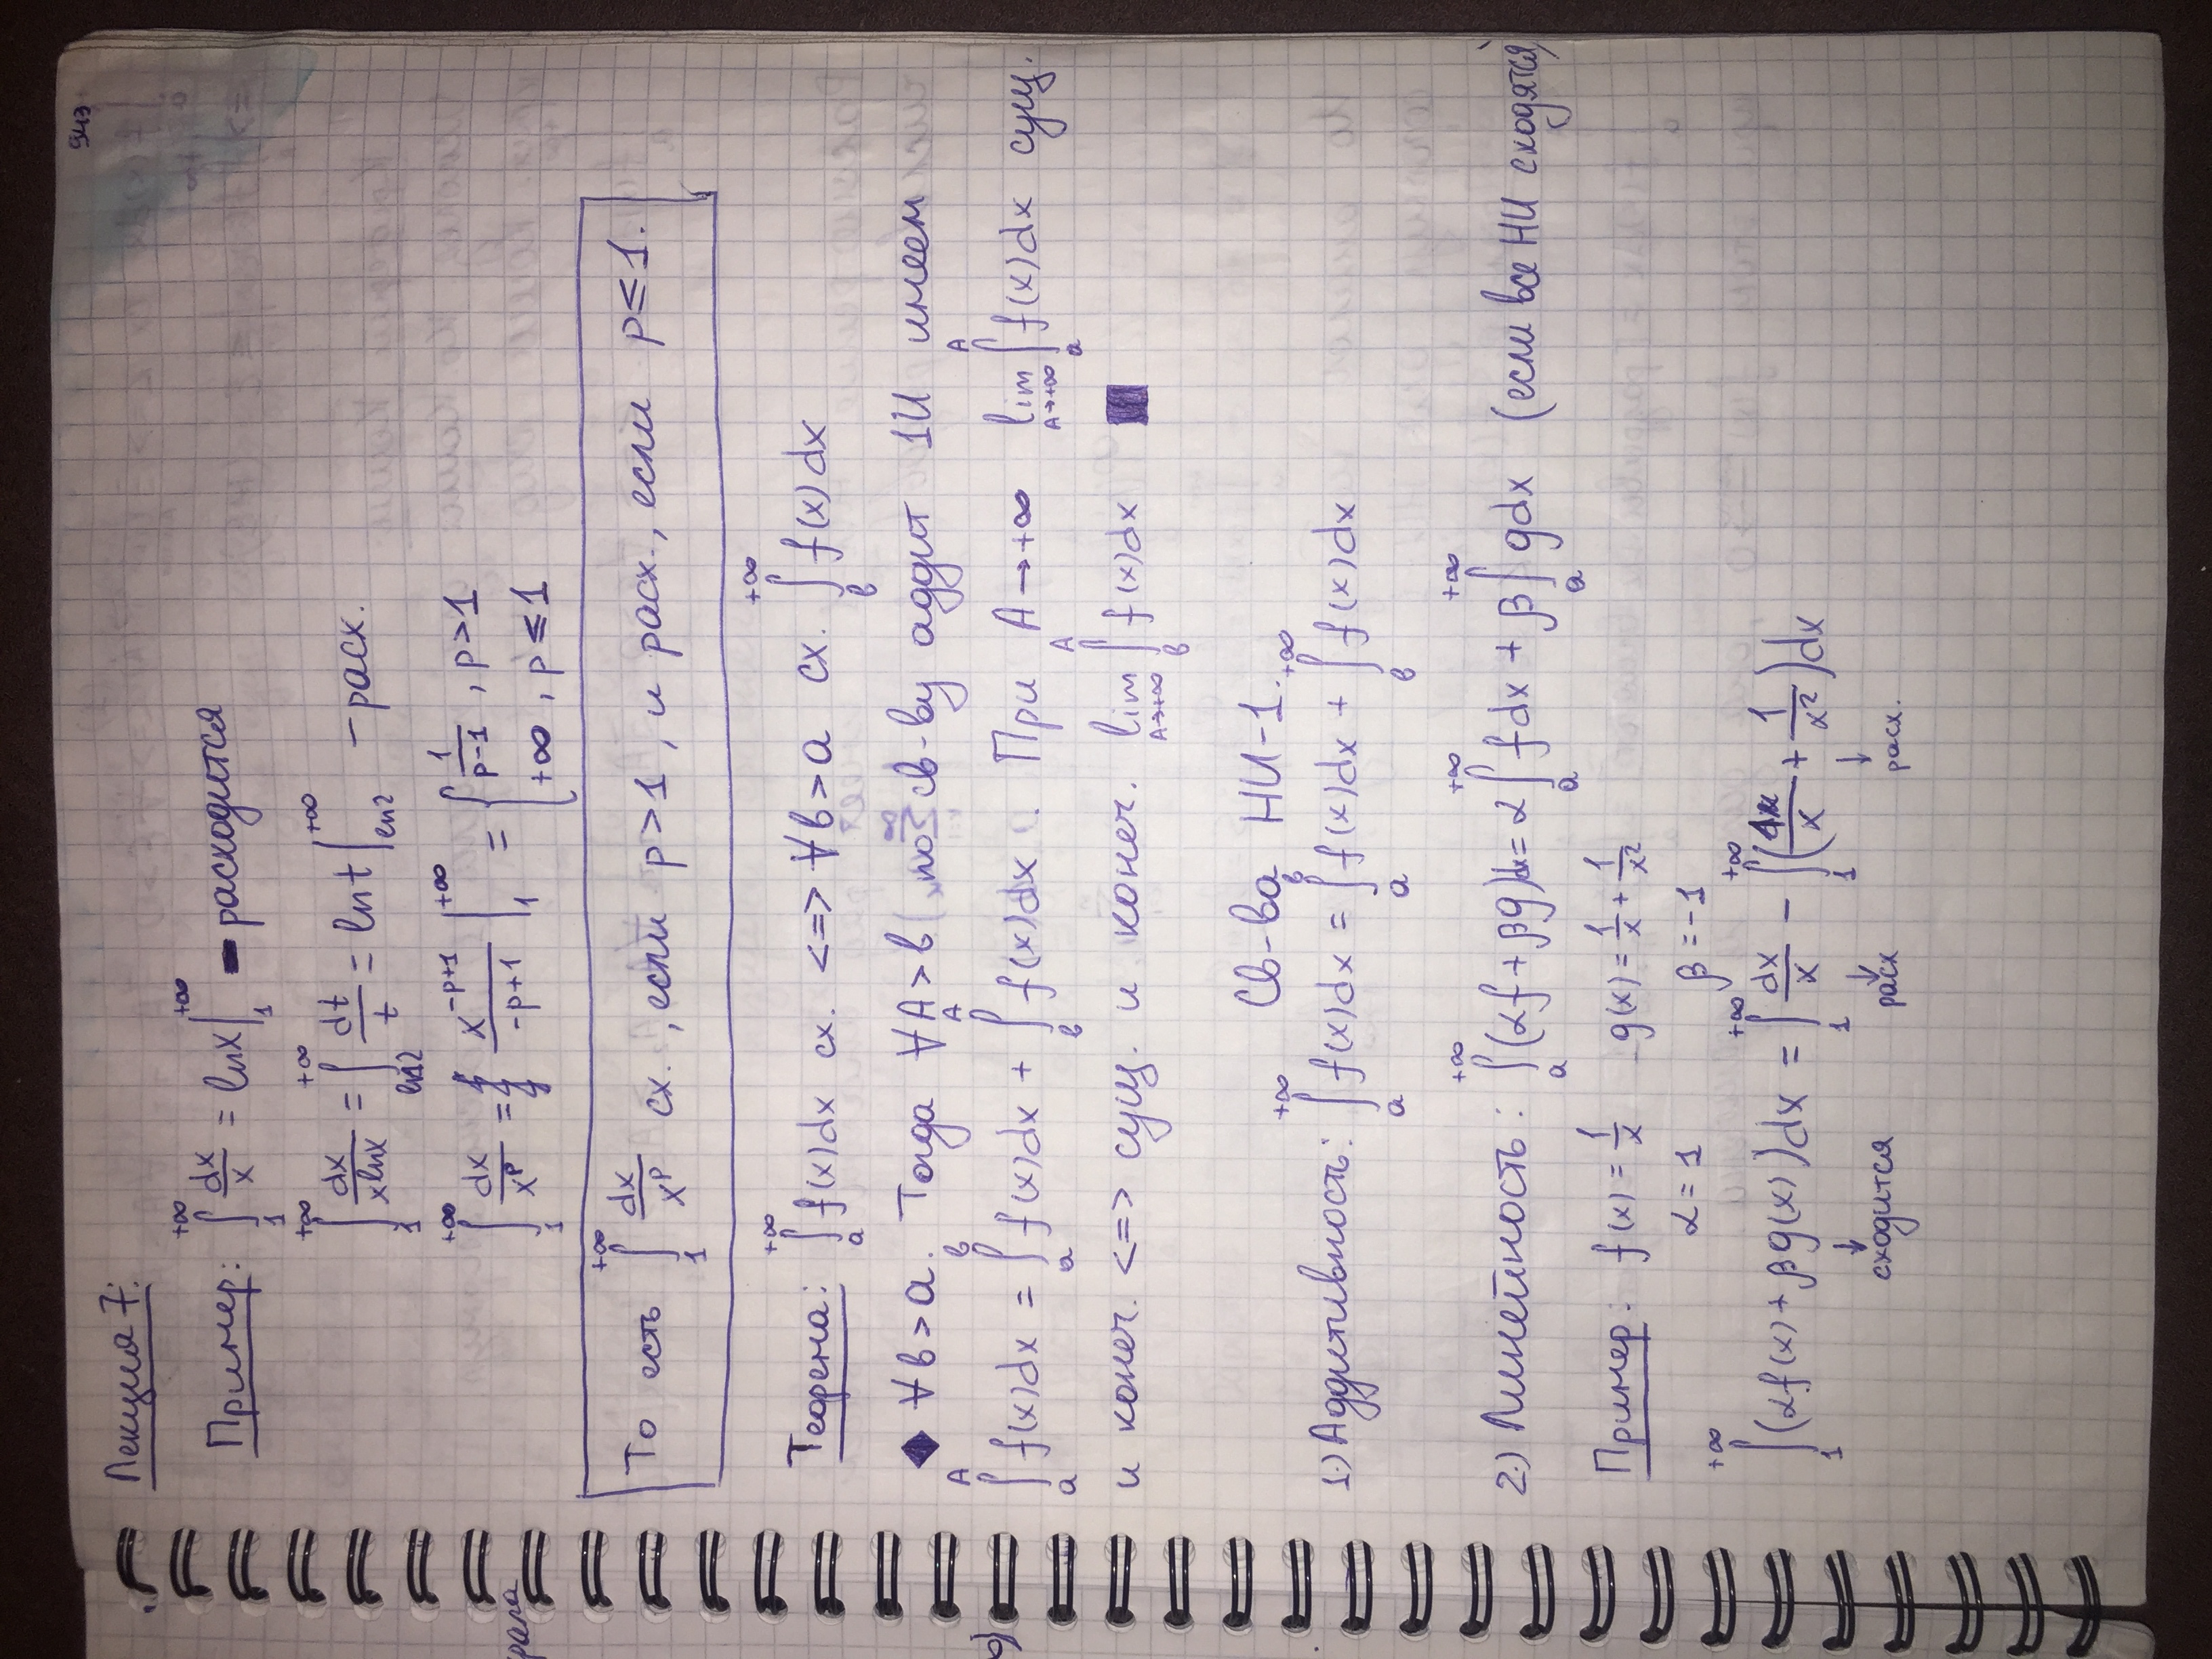 943
Лекция 7:
Пример: ∫₁^{+∞} dx/x = lnx |₁^{+∞} - расходится
∫₁^{+∞} dx/(xlnx) = ∫_{ln2}^{+∞} dt/t = lnt |_{ln2}^{+∞} - расх.
∫₁^{+∞} dx/x^p = x^{-p+1}/(-p+1) |₁^{+∞} = { 1/(p-1), p>1
+∞, p≤1
То есть ∫₁^{+∞} dx/x^p сх., если p>1, и расх., если p≤1.
Теорема: ∫ₐ^{+∞} f(x)dx сх. <=> ∀в>a сх. ∫_в^{+∞} f(x)dx
◆ ∀в>a. Тогда ∀A>в по св-ву аддит 1И имеем
∫ₐ^A f(x)dx = ∫ₐ^в f(x)dx + ∫_в^A f(x)dx. При A→+∞ lim_{A→+∞} ∫ₐ^A f(x)dx сущ.
и конеч. <=> сущ. и конеч. lim_{A→+∞} ∫_в^A f(x)dx ■
Св-ва НИ-1.
1.) Аддитивность: ∫ₐ^{+∞} f(x)dx = ∫ₐ^в f(x)dx + ∫_в^{+∞} f(x)dx
2.) Линейность: ∫ₐ^{+∞} (αf+βg)dx = α∫ₐ^{+∞} fdx + β∫ₐ^{+∞} gdx (если все НИ сходятся)
Пример: f(x) = 1/x g(x) = 1/x + 1/x²
α = 1 β = -1
∫₁^{+∞} (αf(x) + βg(x))dx = ∫₁^{+∞} dx/x - ∫₁^{+∞} (1/x + 1/x²)dx
↓ ↓ ↓
сходится расх расх.